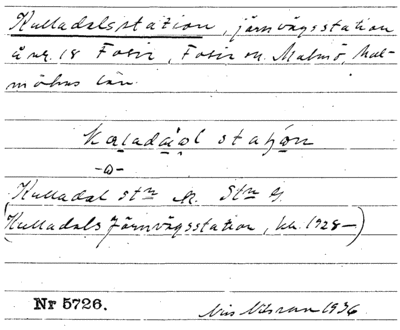 Kulladalsstation, järnvägsstation
å nr. 18 Fosie, Fosie sn. Malmö, Mal-
möhus län.
staʃon
-ω-
(Kulladal stn R. Stn G.
Kulladals Järnvägsstation, bl. 1928-)
Nr 5726.
1936